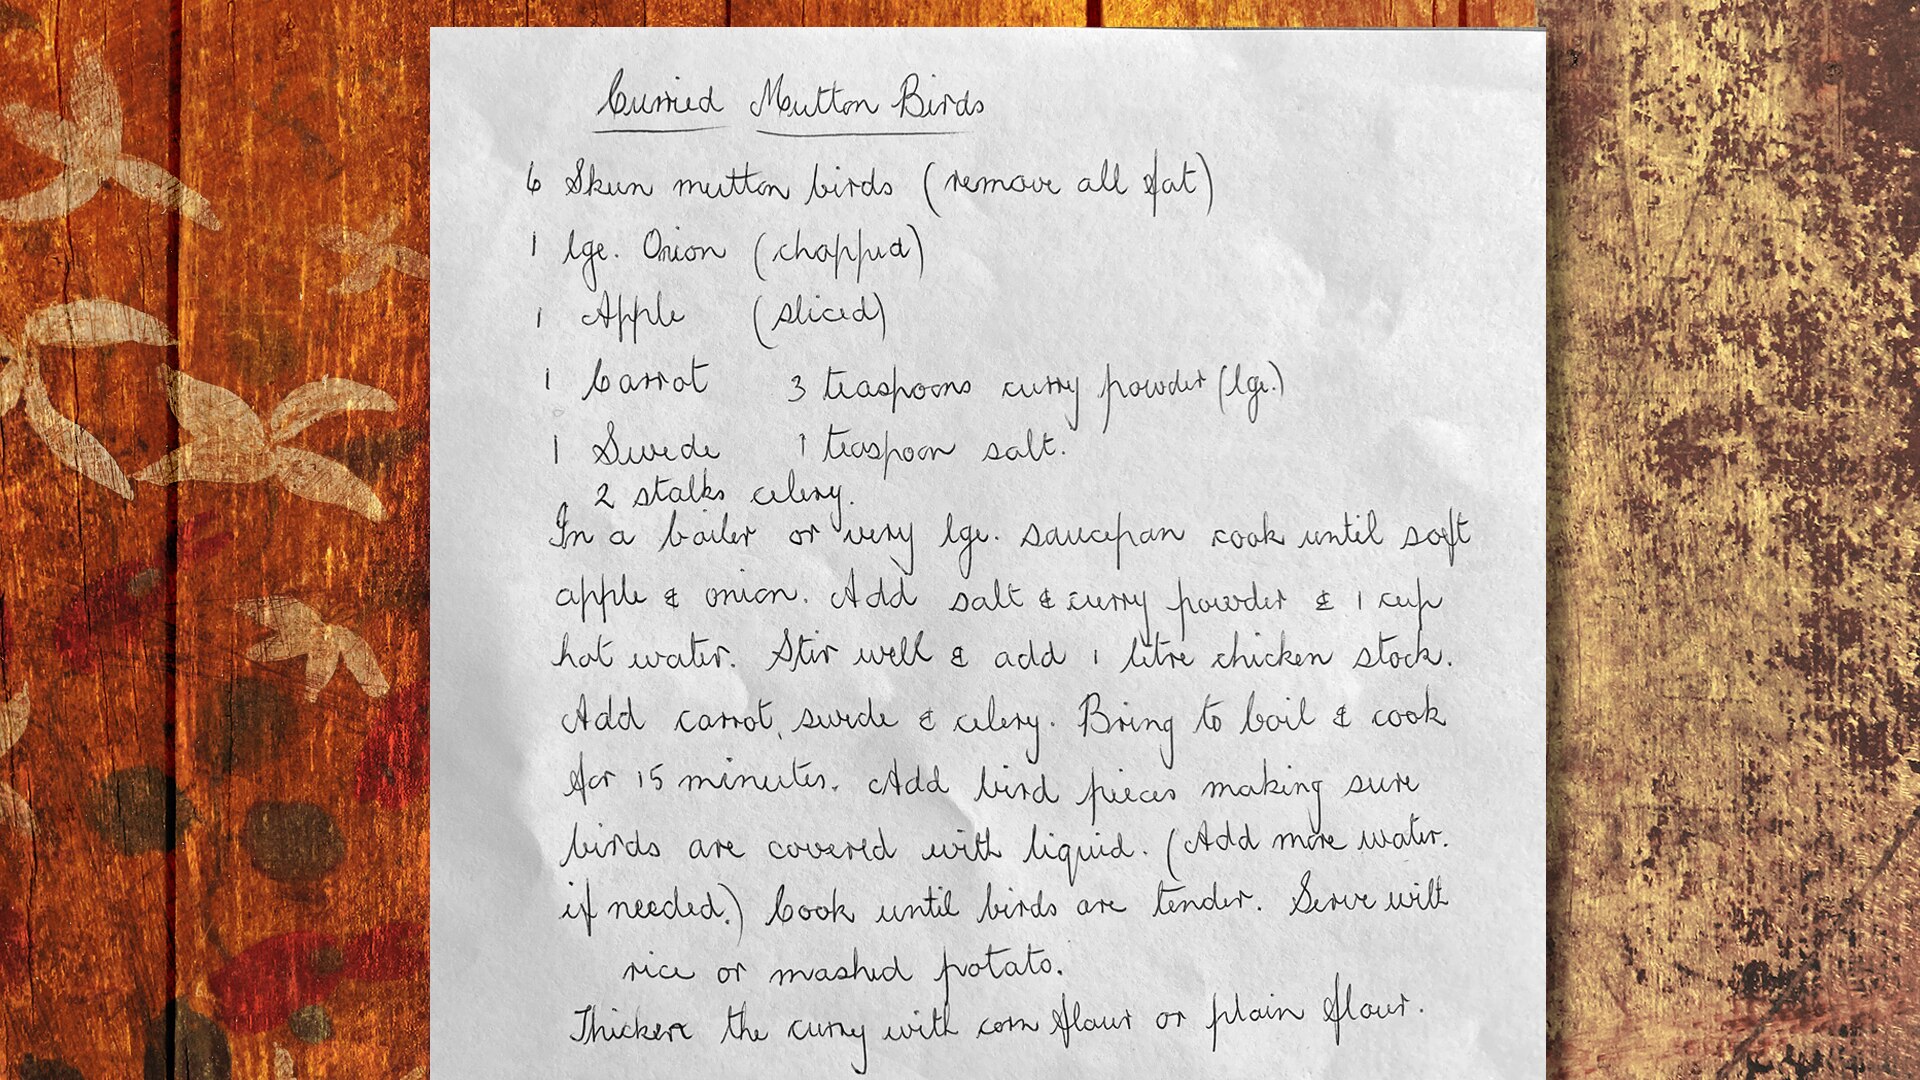 Curried Mutton Birds
6 Skun mutton birds (remove all fat)
1 lge. Onion (chopped)
1 Apple (sliced)
1 Carrot 3 teaspoons curry powder (lge.)
1 Swede 1 teaspoon salt.
2 stalks celery.
In a boiler or very lge. saucepan cook until soft
apple & onion. Add salt & curry powder & 1 cup
hot water. Stir well & add 1 litre chicken stock.
Add carrot, swede & celery. Bring to boil & cook
for 15 minutes. Add bird pieces making sure
birds are covered with liquid. (Add more water.
if needed.) Cook until birds are tender. Serve with
rice or mashed potato.
Thicken the curry with corn flour or plain flour.